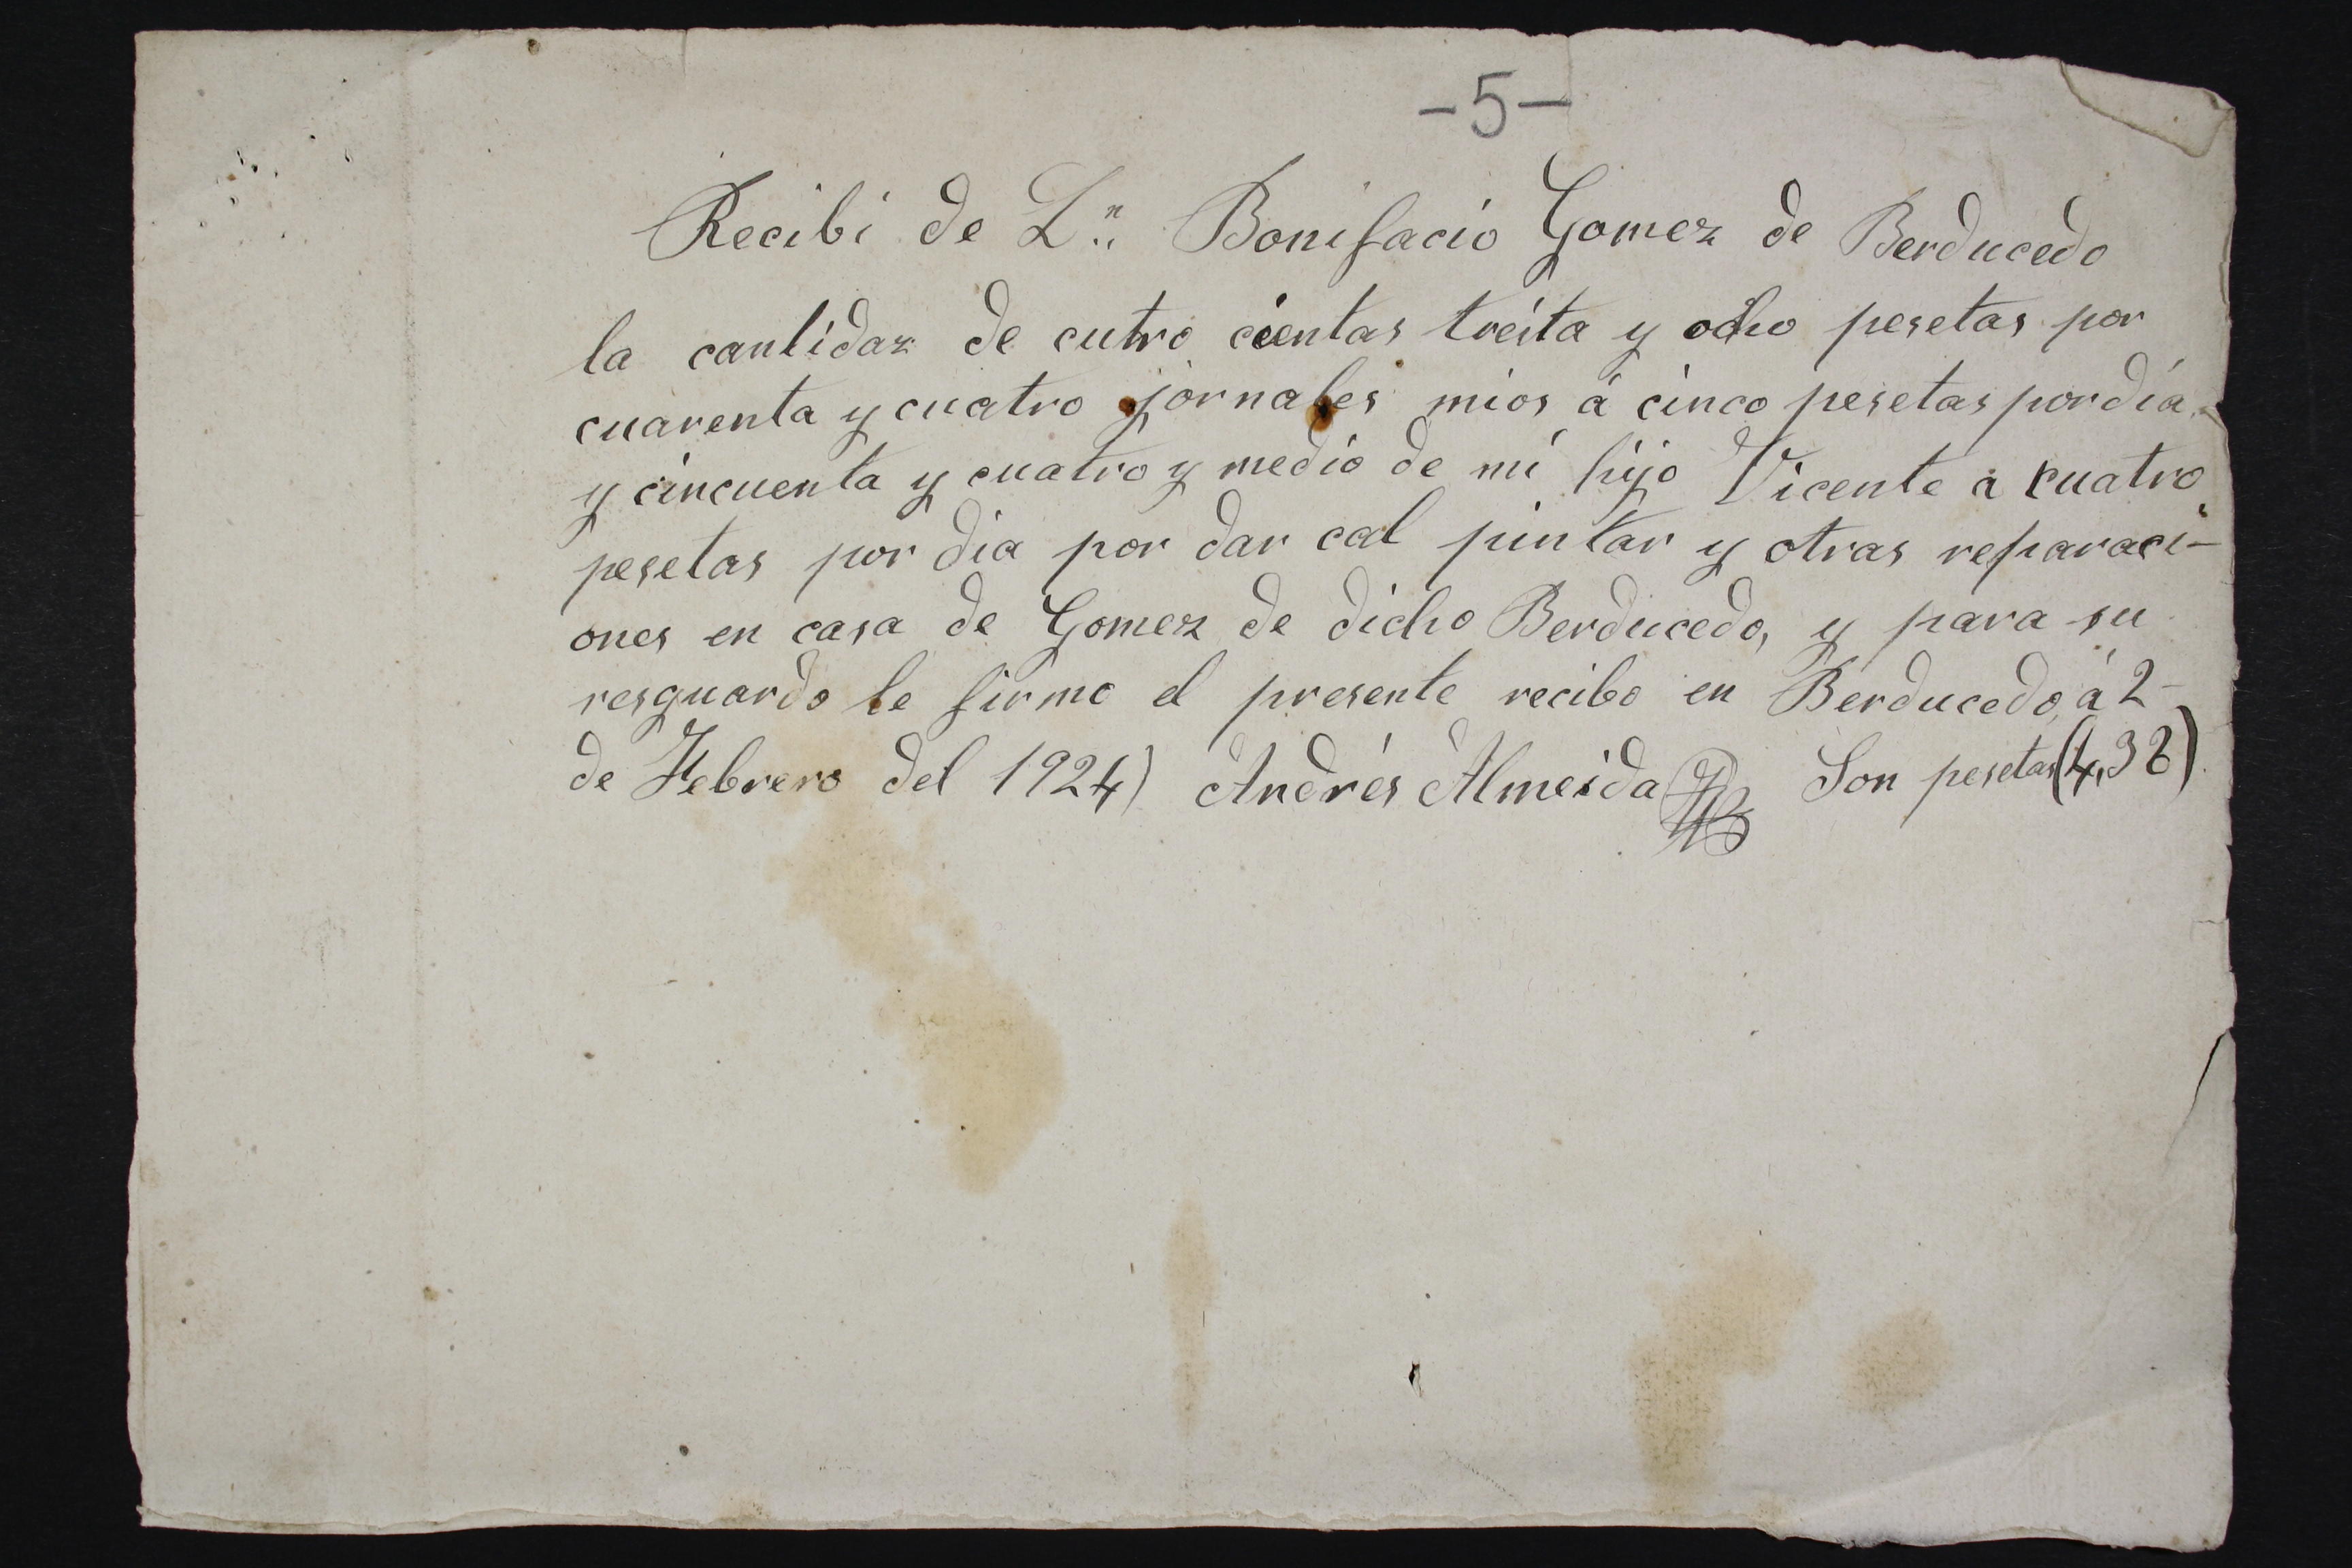 -5-
Recibi de Dn. Bonifacio Gomez de Berducedo
la cantidaz de cutro cientas treita y ocho pesetas por
cuarenta y cuatro jornales mios á cinco pesetas por dia
y cincuenta y cuatro y medio de mi hijo Vicente á cuatro
pesetas por dia por dar cal pintar y otras reparaci-
ones en casa de Gomez de dicho Berducedo, y para su
resguardo le firmo el presente recibo en Berducedo, á 2-
de Febrero del 1924) Andrés Almeida Son pesetas (4,38)